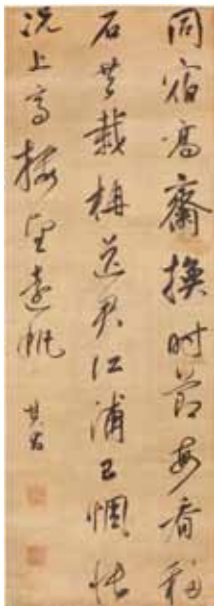 同宿高齋換時節每看移
石共栽梅送君江浦已惆悵
況上高樓望遠帆 其昌